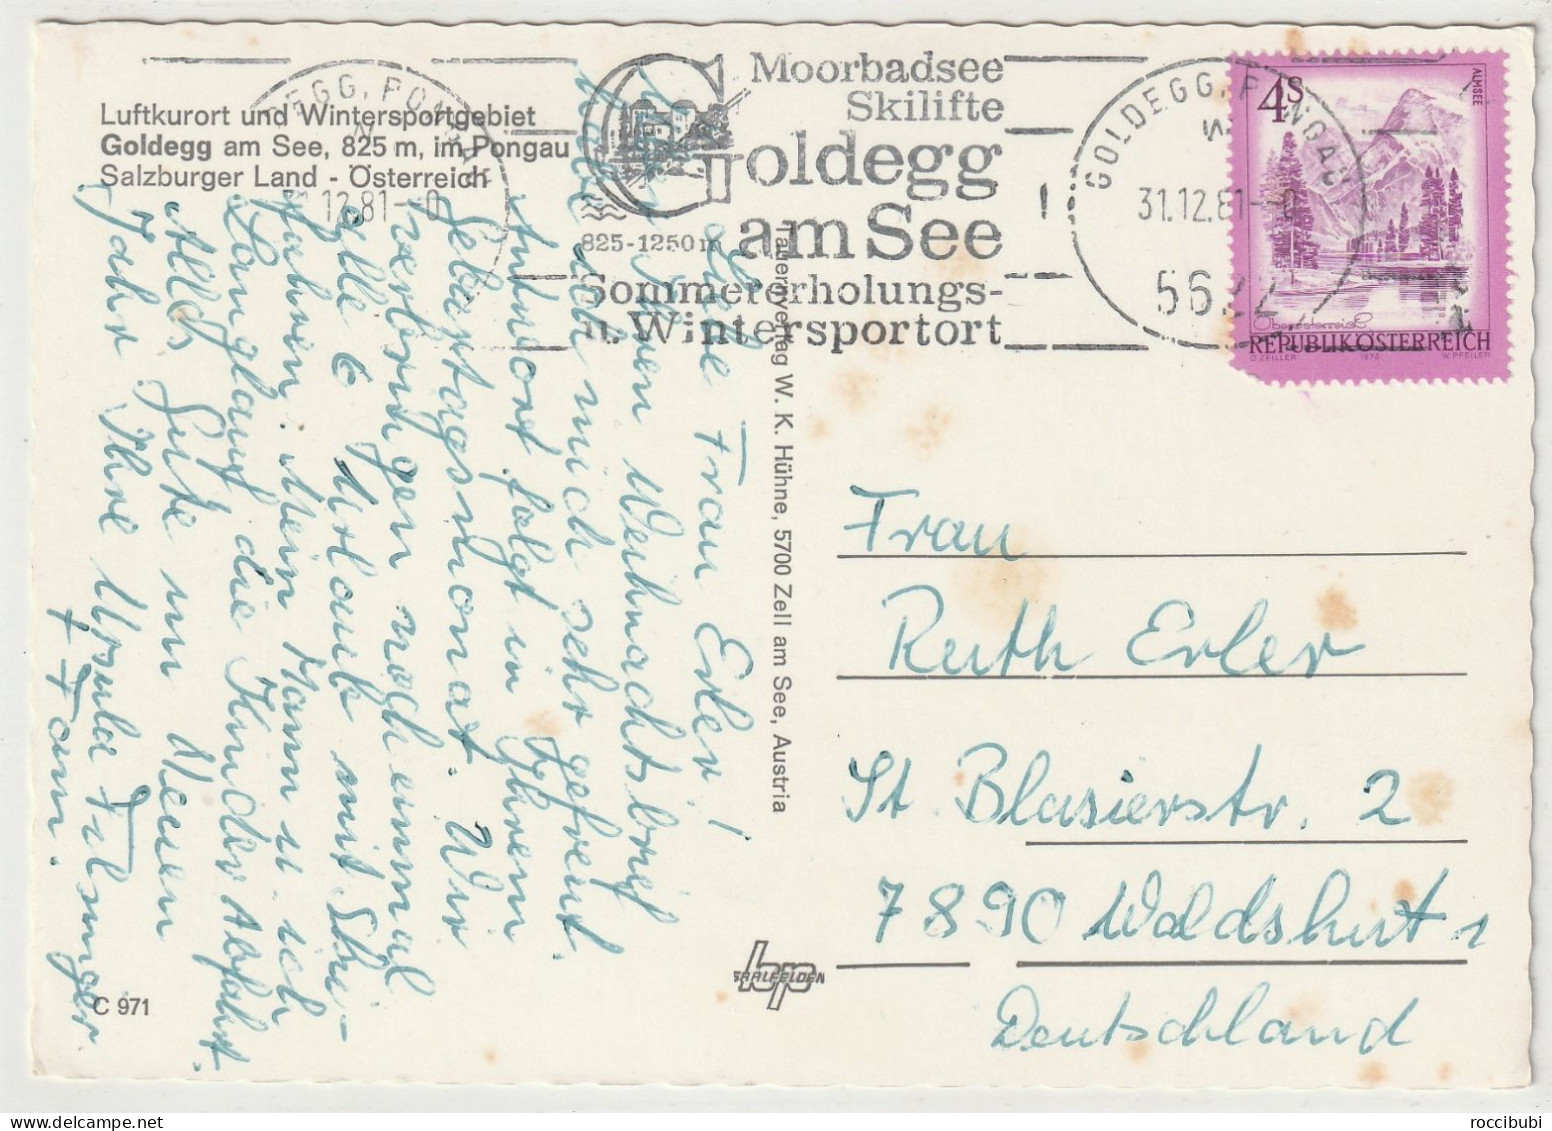 Luftkurort und Wintersportgebiet
Goldegg am See, 825 m, im Pongau
Salzburger Land - Österreich
Moorbadsee
Skilifte
Goldegg
am See
825-1250 m
Sommererholungs-
u. Wintersportort
GOLDEGG, PONGAU
31.12.81--0
5622
4S
ALMSEE
Oberösterreich
REPUBLIK ÖSTERREICH
O. ZEILLER 1973 W. PFEILER
Liebe Frau Erler!
Über Ihren Weihnachtsbrief
habe ich mich sehr gefreut.
Antwort folgt in Ihrem
Geburtstagsmonat. Wir
verbringen noch einmal
alle 6 Urlaub mit Ski-
fahren. Mein Mann u. ich
Langlauf die Kinder Abfahrt.
Alles Gute im Neuen
Jahr Ihre Ursula Filsinger
+ Fam.
Tauernverlag W. K. Hühne, 5700 Zell am See, Austria
bp
SAALFELDEN
C 971
Frau
Ruth Erler
St Blasierstr. 2
7890 Waldshut 1
Deutschland
roccibubi